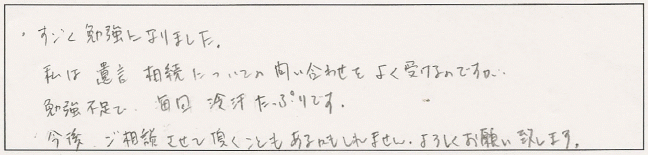 ・すごく勉強になりました。
私は遺言相続についての問い合わせをよく受けるのですが、
勉強不足で、毎回冷汗たっぷりです。
今後、ご相談させて頂くこともあるかもしれません。よろしくお願い致します。